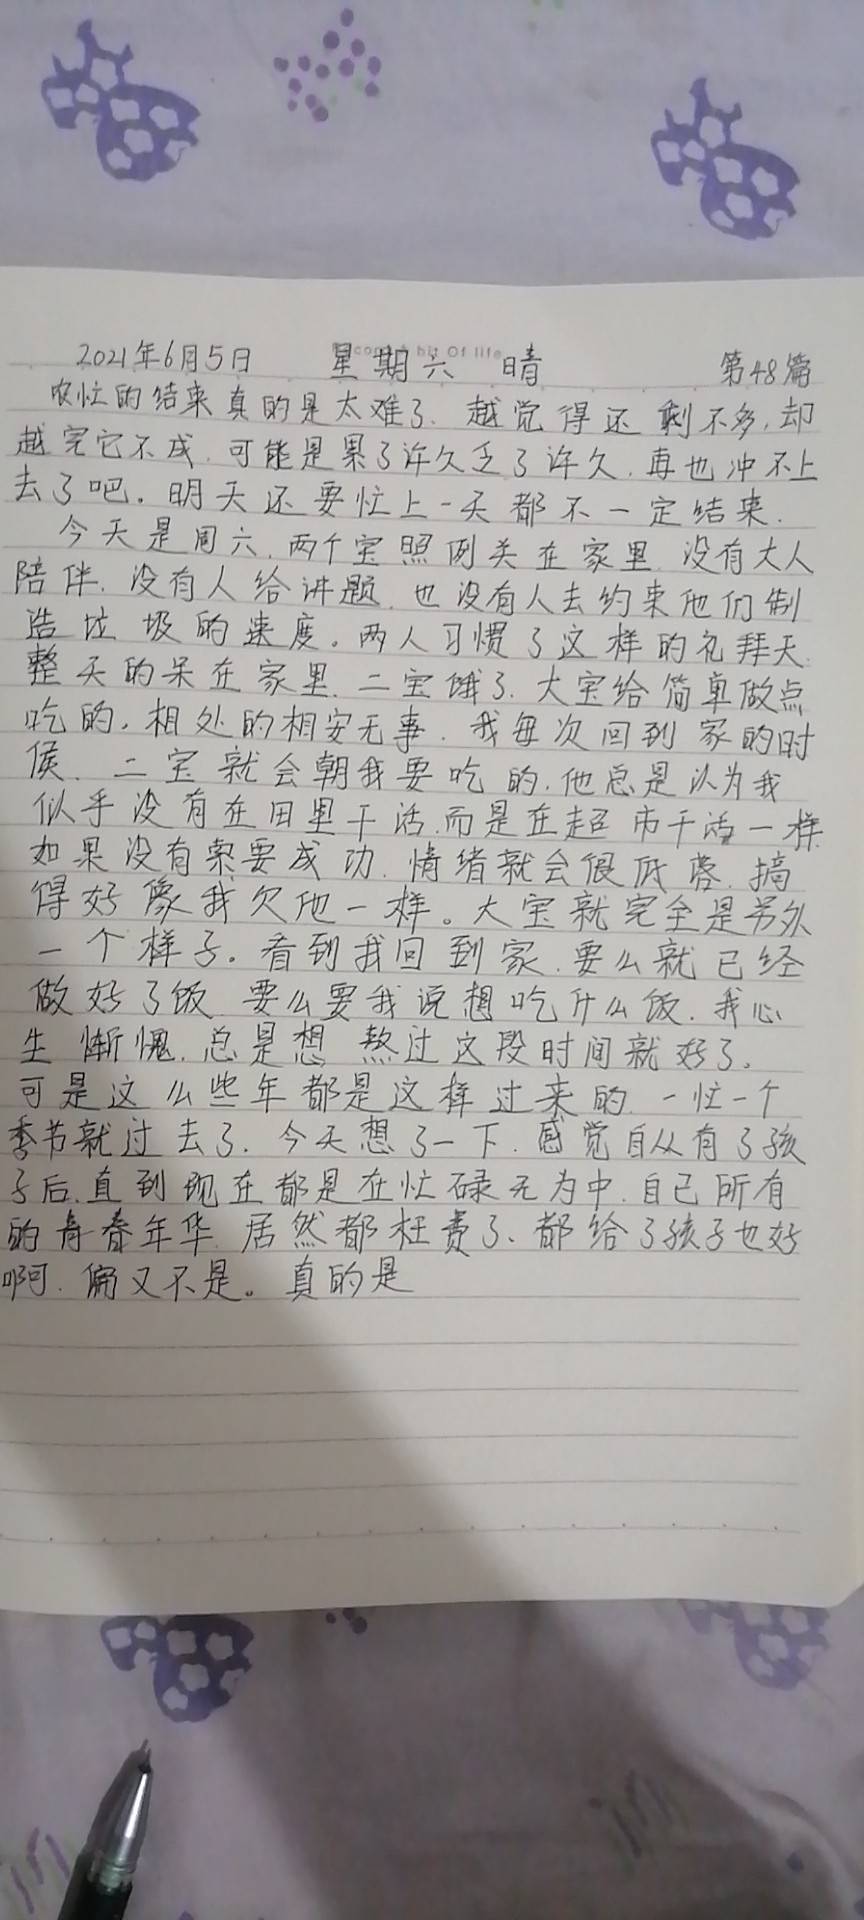 2021年6月5日 星期六 晴 第48篇
农忙的结束真的是太难了、越觉得还剩不多,却
越完它不成.可能是累了许久乏了许久.再也冲不上
去了吧。明天还要忙上一天都不一定结束.
今天是周六.两个宝照例关在家里.没有大人
陪伴.没有人给讲题.也没有人去约束他们制
造垃圾的速度。两人习惯了这样的礼拜天.
整天的呆在家里.二宝饿了.大宝给简单做点
吃的.相处的相安无事.我每次回到家的时
侯.二宝就会朝我要吃的.他总是认为我
似乎没有在田里干活.而是在超市干活一样.
如果没有索要成功.情绪就会很低落.搞
得好像我欠他一样。大宝就完全是另外
一个样子。看到我回到家.要么就已经
做好了饭.要么要我说想吃什么饭.我心
生惭愧.总是想熬过这段时间就好了.
可是这么些年都是这样过来的.一忙一个
季节就过去了.今天想了一下.感觉自从有了孩
子后.直到现在都是在忙碌无为中.自己所有
的青春年华.居然都枉费了、都给了孩子也好
啊.偏又不是。真的是